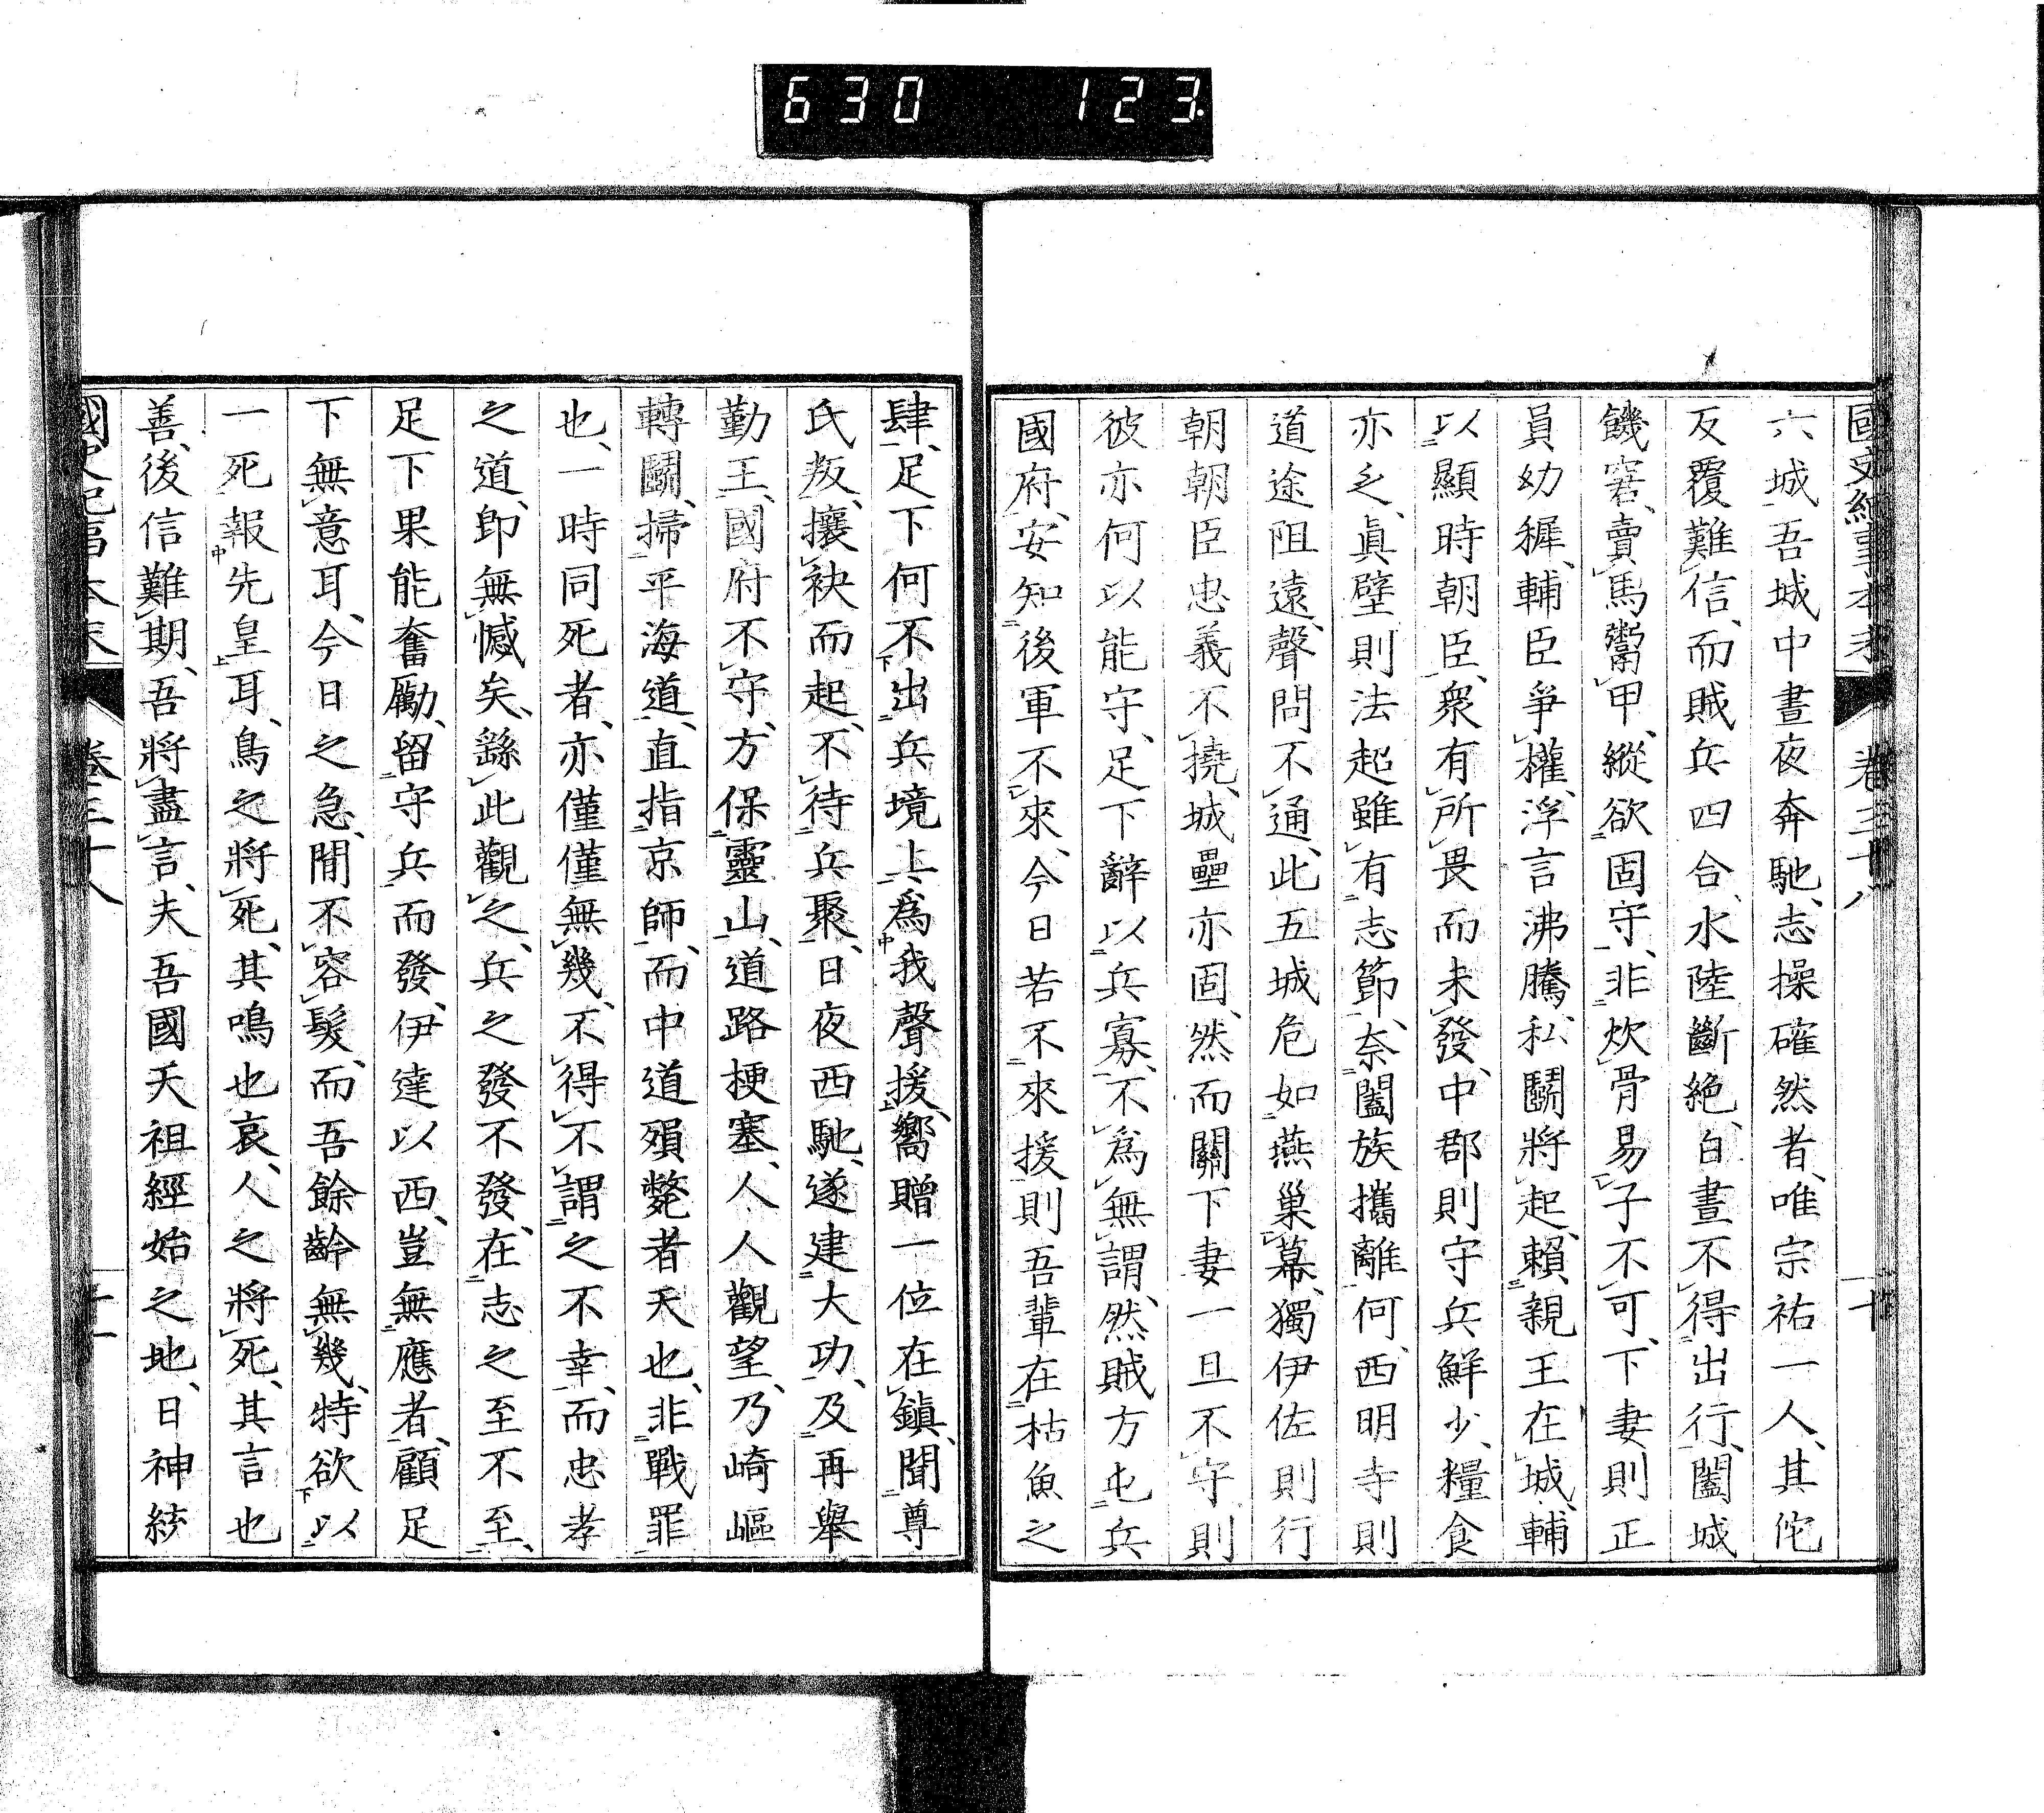 630 123.
國史紀事本末 卷三十八 十
六城、吾城中晝夜奔馳、志操確然者、唯宗祐一人、其佗
反覆難信、而賊兵四合、水陸斷絶、白晝不得出行、闔城
饑窘、賣馬鬻甲、縱欲固守、非炊骨易子不可、下妻則正
員幼穉、輔臣爭權、浮言沸騰、私鬭將起、賴親王在城、輔
以顯時朝臣、衆有所畏而未發、中郡則守兵鮮少、糧食
亦乏、眞壁則法超雖有志節、奈闔族攜離何、西明寺則
道途阻遠、聲問不通、此五城危如燕巢幕、獨伊佐則行
朝朝臣忠義不撓、城壘亦固、然而關下妻一旦不守則
彼亦何以能守、足下辭以兵寡、不爲無謂、然賊方屯兵
國府、安知後軍不來、今日若不來援則吾輩在枯魚之
肆、足下何不出兵境上爲我聲援、嚮贈一位在鎭、聞尊
氏叛、攘袂而起、不待兵聚、日夜西馳、遂建大功、及再舉
勤王、國府不守、方保靈山、道路梗塞、人人觀望、乃崎嶇
轉鬭、掃平海道、直指京師、而中道殞斃者天也、非戰罪
也、一時同死者、亦僅僅無幾、不得不謂之不幸、而忠孝
之道、卽無憾矣、繇此觀之、兵之發不發、在志之至不至、
足下果能奮勵、留守兵而發、伊達以西、豈無應者、顧足
下無意耳、今日之急、間不容髮、而吾餘齡無幾、特欲以
一死報先皇耳、鳥之將死、其鳴也哀、人之將死、其言也
善、後信難期、吾將盡言、夫吾國天祖經始之地、日神統
國史紀事本末 卷三十八 十一